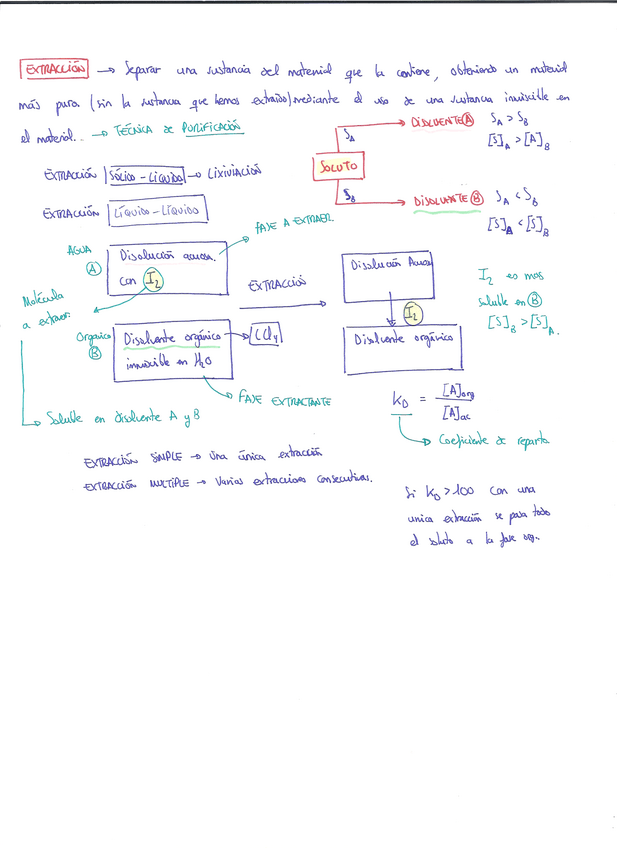 EXTRACCIÓN → Separar una sustancia del material que la contiene, obteniendo un material
más puro (sin la sustancia que hemos extraído) mediante el uso de una sustancia inmiscible en
el material. → TÉCNICA DE PURIFICACIÓN
SOLUTO
S_A → DISOLVENTE A
S_A > S_B
[S]_A > [A]_B
S_B → DISOLVENTE B
S_A < S_B
[S]_A < [S]_B
EXTRACCIÓN SÓLIDO-LÍQUIDO → LIXIVIACIÓN
EXTRACCIÓN LÍQUIDO-LÍQUIDO
AGUA
A
Disolución acuosa
con I₂
FASE A EXTRAER
Molécula
a extraer
Soluble en disolvente A y B
Orgánico
B
Disolvente orgánico
inmiscible en H₂O
CCl₄
FASE EXTRACTANTE
EXTRACCIÓN
Disolución Acuosa
I₂
Disolvente orgánico
I₂ es mas
soluble en B
[S]_B > [S]_A.
K_D = [A]org / [A]ac
Coeficiente de reparto
EXTRACCIÓN SIMPLE → Una única extracción
EXTRACCIÓN MULTIPLE → Varias extracciones consecutivas.
Si K_D > 100 con una
unica extracción se pasa todo
el soluto a la fase org.